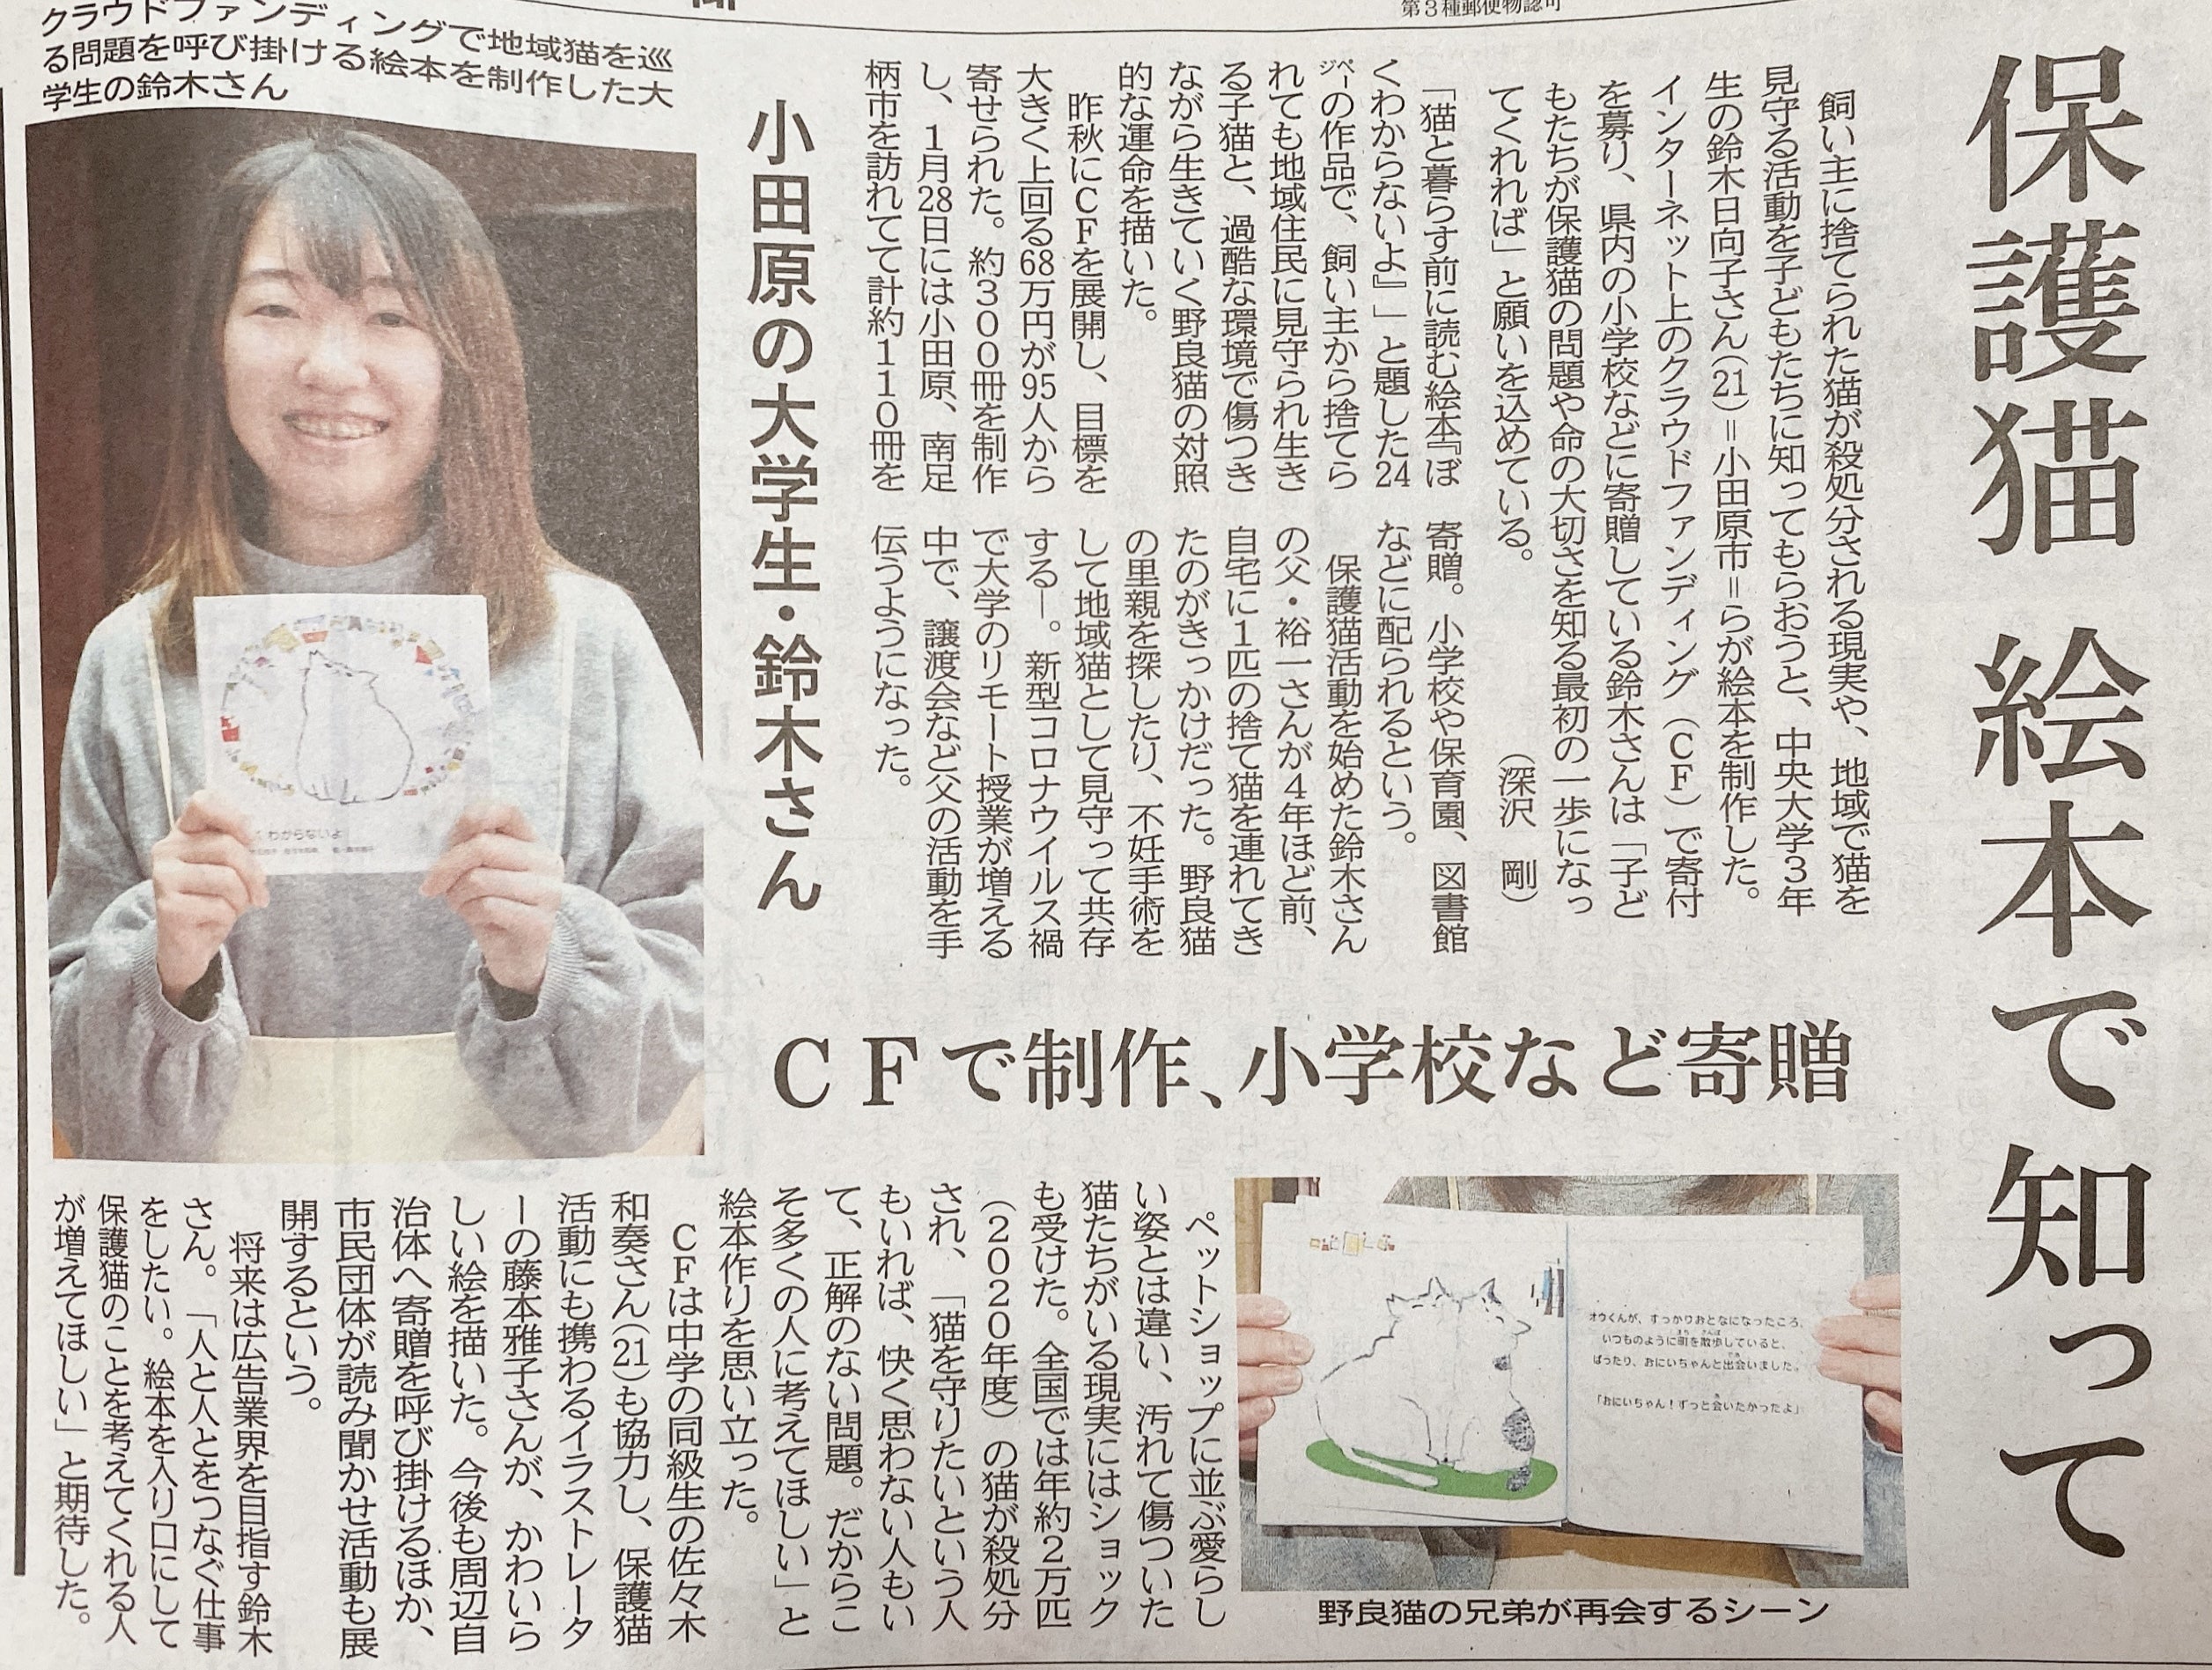 第３種郵便物認可
保護猫 絵本で知って
飼い主に捨てられた猫が殺処分される現実や、地域で猫を
見守る活動を子どもたちに知ってもらおうと、中央大学３年
生の鈴木日向子さん(21)＝小田原市＝らが絵本を制作した。
インターネット上のクラウドファンディング（ＣＦ）で寄付
を募り、県内の小学校などに寄贈している鈴木さんは「子ど
もたちが保護猫の問題や命の大切さを知る最初の一歩になっ
てくれれば」と願いを込めている。　（深沢　剛）
「猫と暮らす前に読む絵本『ぼ
くわからないよ』」と題した24
㌻の作品で、飼い主から捨てら
れても地域住民に見守られ生き
る子猫と、過酷な環境で傷つき
ながら生きていく野良猫の対照
的な運命を描いた。
昨秋にＣＦを展開し、目標を
大きく上回る68万円が95人から
寄せられた。約３００冊を制作
し、１月28日には小田原、南足
柄市を訪れてて計約１１０冊を
寄贈。小学校や保育園、図書館
などに配られるという。
保護猫活動を始めた鈴木さん
の父・裕一さんが４年ほど前、
自宅に１匹の捨て猫を連れてき
たのがきっかけだった。野良猫
の里親を探したり、不妊手術を
して地域猫として見守って共存
する―。新型コロナウイルス禍
で大学のリモート授業が増える
中で、譲渡会など父の活動を手
伝うようになった。
小田原の大学生・鈴木さん
クラウドファンディングで地域猫を巡
る問題を呼び掛ける絵本を制作した大
学生の鈴木さん
わからないよ
ＣＦで制作、小学校など寄贈
オウくんが、すっかりおとなになったころ、
いつものように町を散歩していると、
ばったり、おにいちゃんと出会いました。
「おにいちゃん！ずっと会いたかったよ」
野良猫の兄弟が再会するシーン
ペットショップに並ぶ愛らし
い姿とは違い、汚れて傷ついた
猫たちがいる現実にはショック
も受けた。全国では年約２万匹
（２０２０年度）の猫が殺処分
され、「猫を守りたいという人
もいれば、快く思わない人もい
て、正解のない問題。だからこ
そ多くの人に考えてほしい」と
絵本作りを思い立った。
ＣＦは中学の同級生の佐々木
和奏さん(21)も協力し、保護猫
活動にも携わるイラストレータ
ーの藤本雅子さんが、かわいら
しい絵を描いた。今後も周辺自
治体へ寄贈を呼び掛けるほか、
市民団体が読み聞かせ活動も展
開するという。
将来は広告業界を目指す鈴木
さん。「人と人とをつなぐ仕事
をしたい。絵本を入り口にして
保護猫のことを考えてくれる人
が増えてほしい」と期待した。